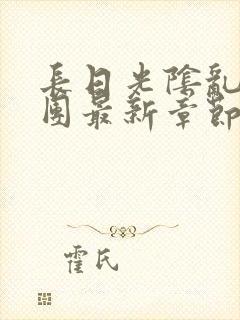 長日光陰亂
團最新章節
霍氏